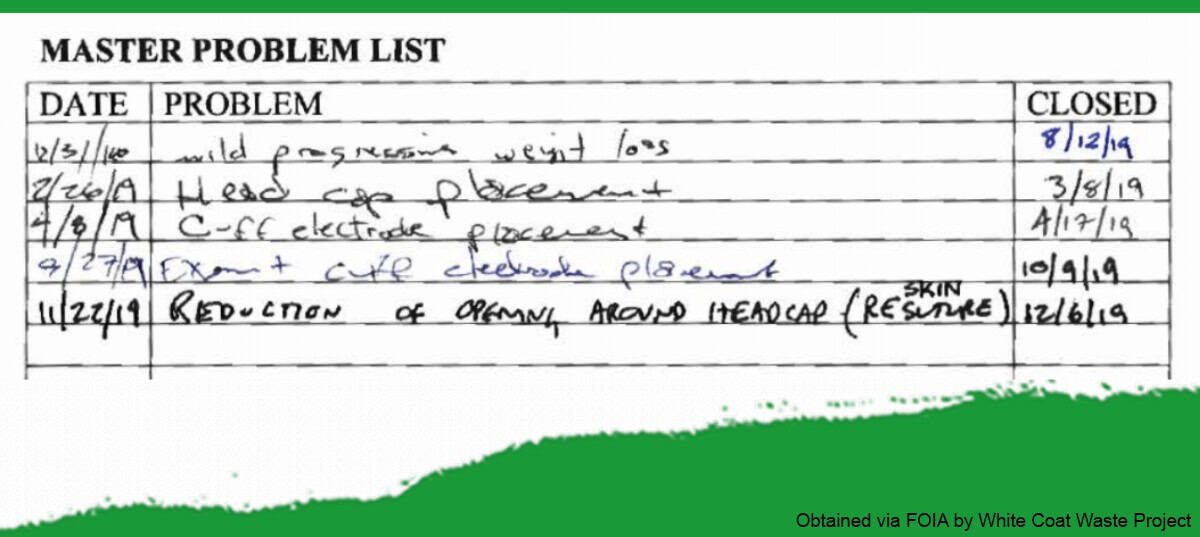 MASTER PROBLEM LIST
DATE PROBLEM CLOSED
mild progressive weight loss 8/12/19
2/26/19 Head cap placement 3/8/19
4/8/19 Cuff electrode placement 4/17/19
9/27/19 cuff electrode placement 10/9/19
11/22/19 REDUCTION OF OPENING AROUND HEADCAP (RESUTURE SKIN) 12/6/19
Obtained via FOIA by White Coat Waste Project